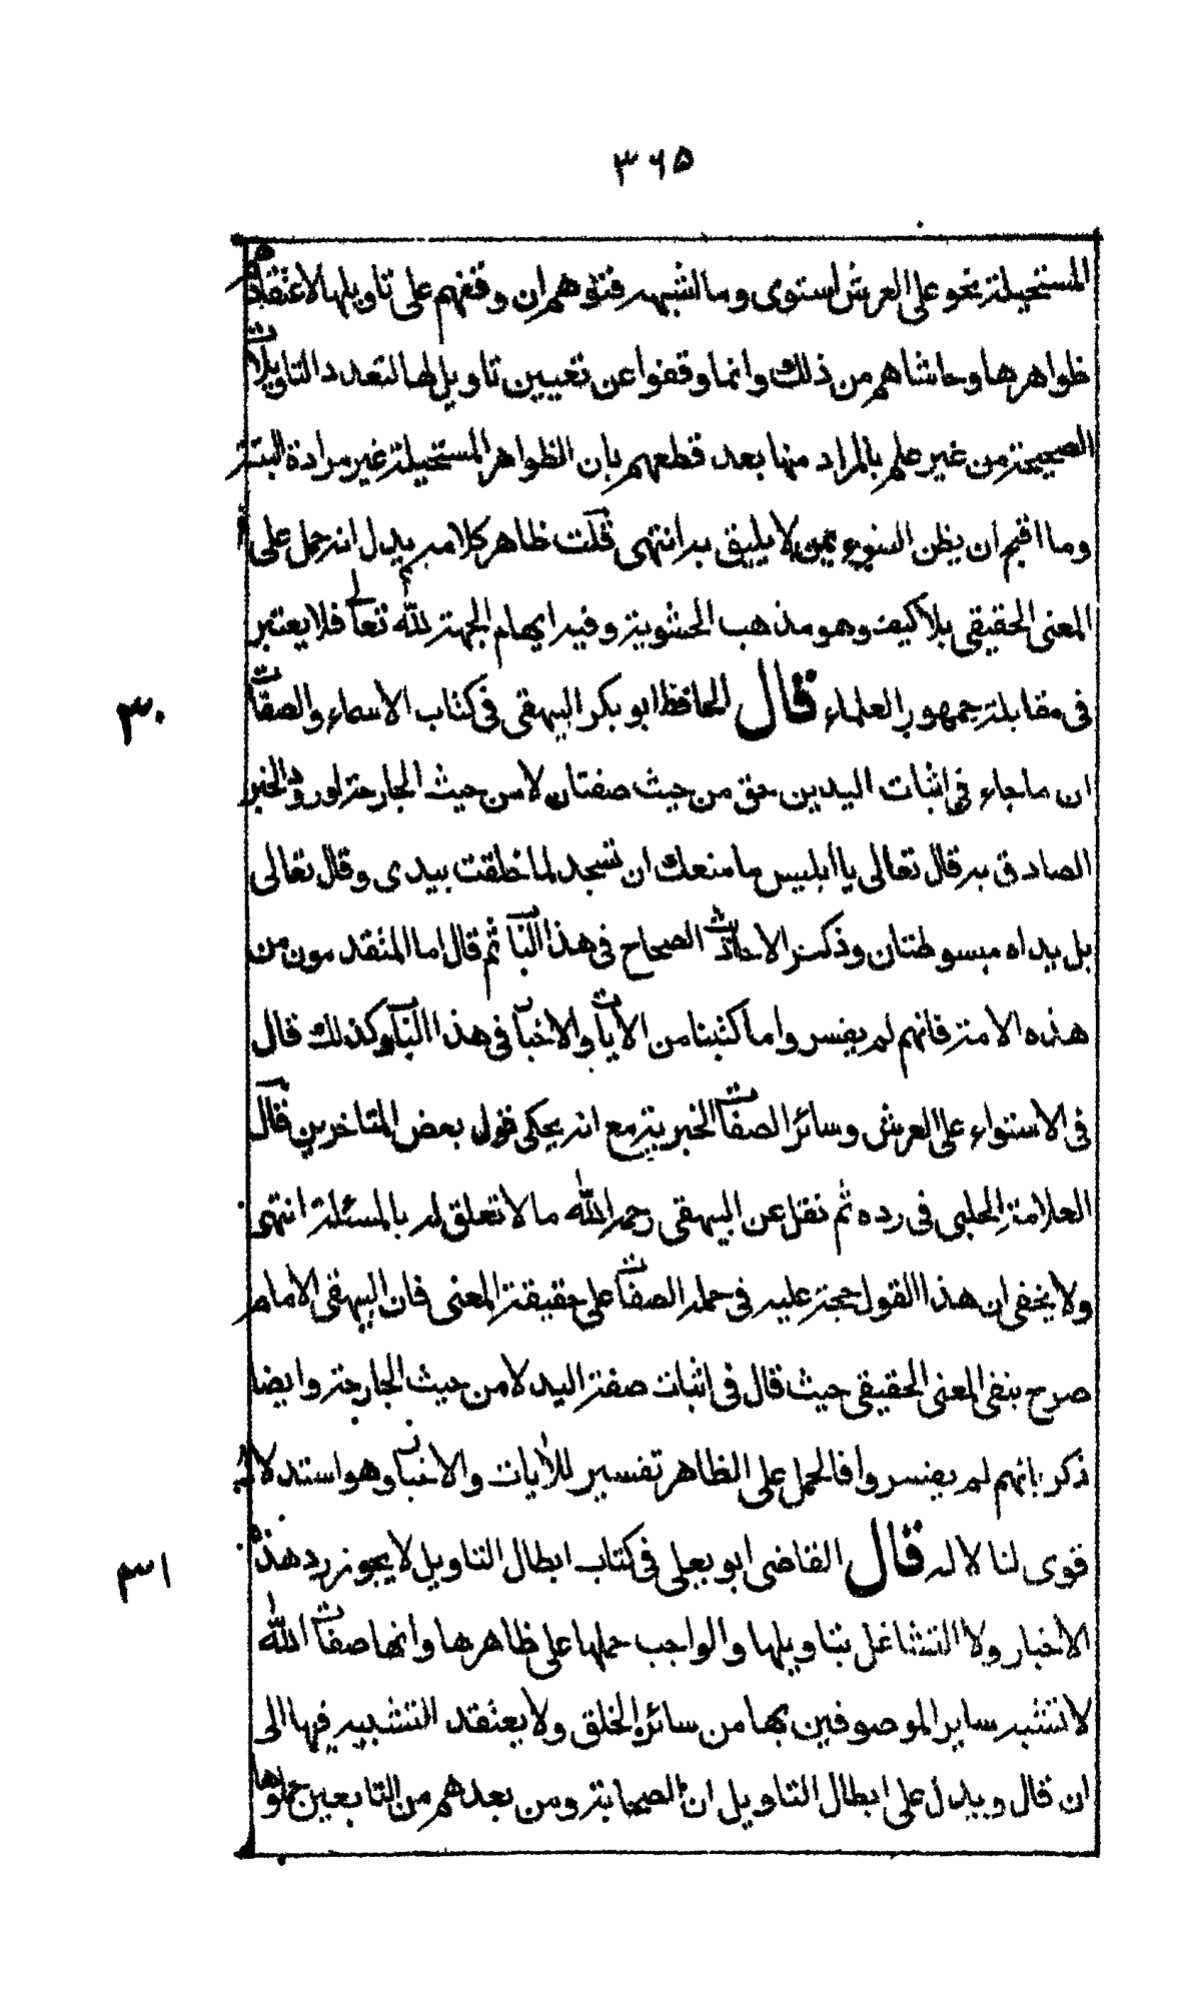 ٣٦٥
المستحيلة نحو على العرش استوى وما اشبهه فتوهم ان وقفهم على تاويلها لاعتقادهم
ظواهرها وحاشاهم من ذلك وانما وقفوا عن تعيين تاويل لها لتعدد التاويلات
الصحيحة من غير علم بالمراد منها بعد قطعهم بان الظواهر المستحيلة غير مرادة البتة
وما اقبح ان يظن السوء بمن لا يليق به انتهى قلت ظاهر كلامه يدل انه حمل على
المعنى الحقيقى بلا كيف وهو مذهب الحشوية وفيه ايهام الجهة لله تعالى فلا يعتبر
فى مقابلة جمهور العلماء قال الحافظ ابو بكر البيهقى فى كتاب الاسماء والصفات
٣٠
ان ما جاء فى اثبات اليدين حق من حيث صفتان لا من حيث الجارحة لورود الخبر
الصادق به قال تعالى يا ابليس ما منعك ان تسجد لما خلقت بيدى وقال تعالى
بل يداه مبسوطتان وذكر الاحاديث الصحاح فى هذا الباب ثم قال اما المتقدمون من
هذه الامة فانهم لم يفسروا ما كتبنا من الايات والاخبار فى هذا الباب وكذلك قال
فى الاستواء على العرش وسائر الصفات الخبرية مع انه يحكى قول بعض المتاخرين قال
العلامة الحلبى فى رده ثم نقل عن البيهقى رحمه الله ما لا تعلق له بالمسئلة انتهى
ولا يخفى ان هذا القول حجة عليه فى حمله الصفات على حقيقة المعنى فان البيهقى الامام
صرح بنفى المعنى الحقيقى حيث قال فى اثبات صفة اليد لا من حيث الجارحة وايضا
ذكر بانهم لم يفسروا فالحمل على الظاهر تفسير للايات والاخبار وهو استدلال
قوى لنا لا له قال القاضى ابو يعلى فى كتاب ابطال التاويل لا يجوز رد هذه
٣١
الاخبار ولا التشاغل بتاويلها والواجب حملها على ظاهرها وانها صفات الله
لا تشبه ساير الموصوفين بها من سائر الخلق ولا يعتقد التشبيه فيها الى
ان قال ويدل على ابطال التاويل ان الصحابة ومن بعدهم من التابعين حملوها